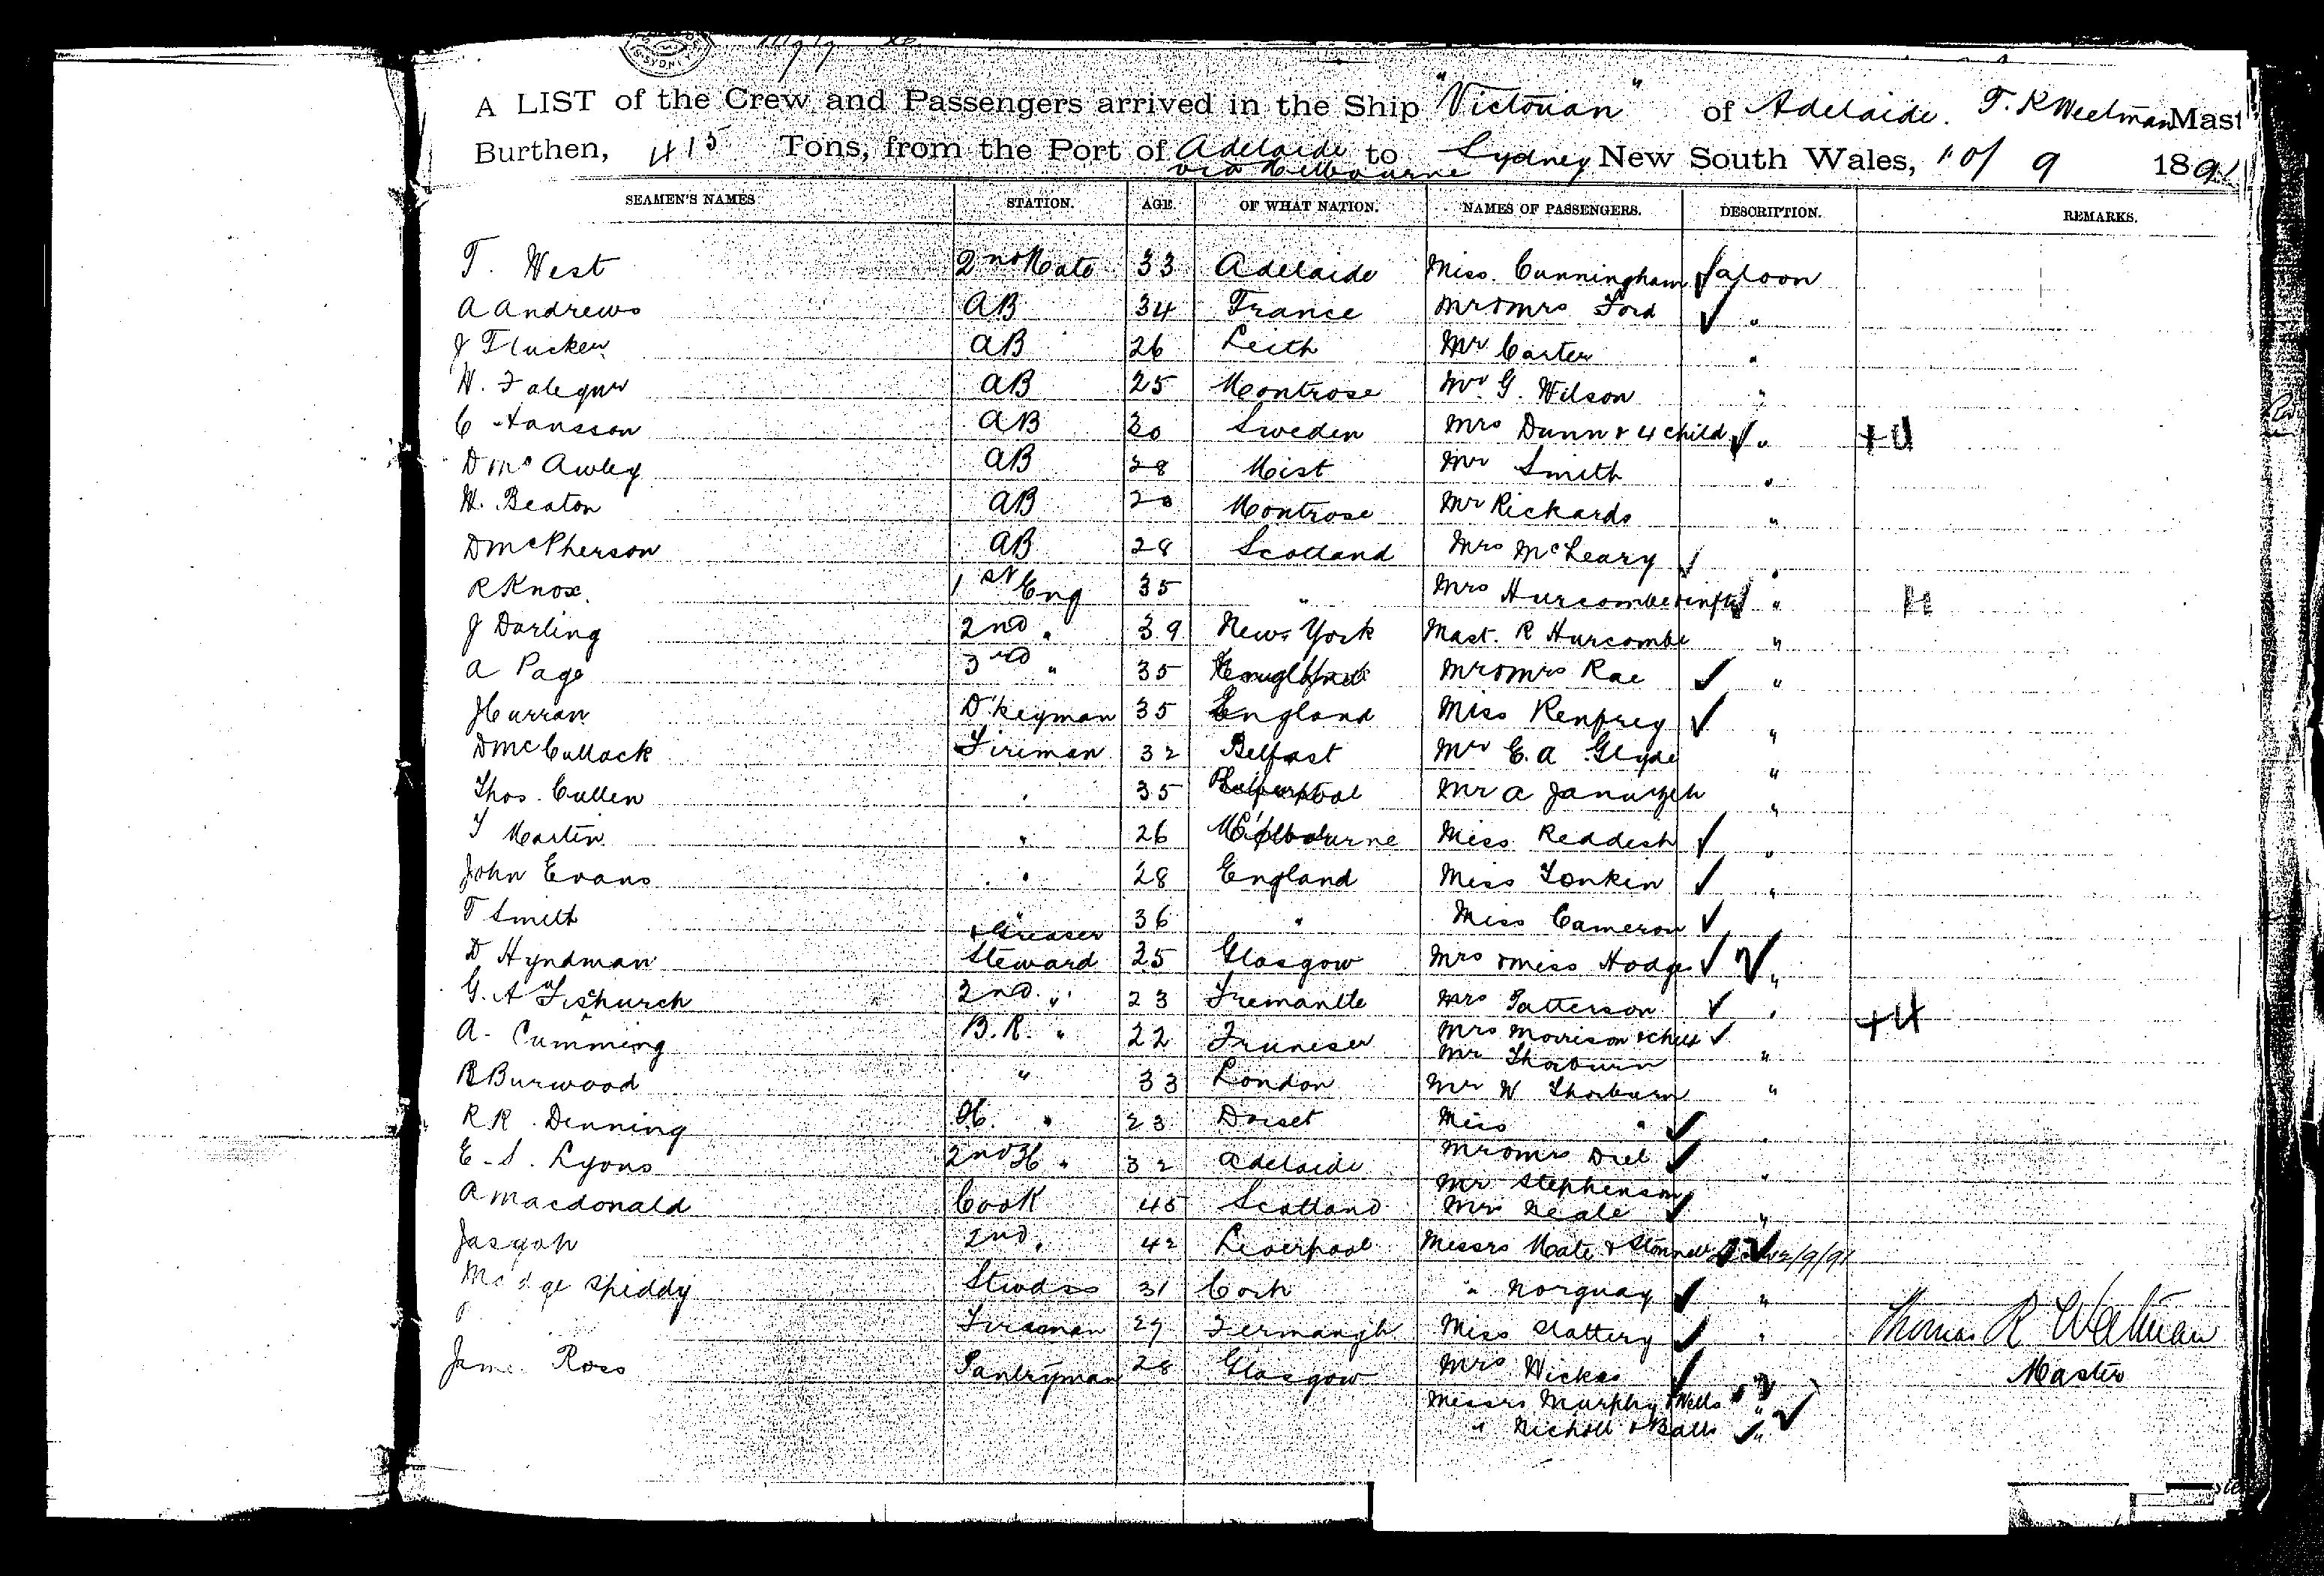 A LIST of the Crew and Passengers arrived in the Ship "Victorian" of Adelaide. T. R Weetman Mast
Burthen, 415 Tons, from the Port of Adelaide to Sydney New South Wales, 10/9 1891
via Melbourne
SEAMEN'S NAMES STATION. AGE. OF WHAT NATION. NAMES OF PASSENGERS. DESCRIPTION. REMARKS.
T. West 2nd Mate 33 Adelaide Miss Cunningham Saloon
A Andrews AB 34 France Mr & Mrs Ford "
J Tlucker AB 26 Leith Mr Carter "
W. AB 25 Montrose Mr G. Wilson "
C Hansson AB 20 Sweden Mrs Dunn & 4 child " +4
D McAwley AB 28 Mist Mr Smith "
W. Beaton AB 20 Montrose Mr Rickards "
D McPherson AB 28 Scotland Mrs McLeary "
R Knox. 1st Eng 35 " Mrs Hurcombe & inft "
J Darling 2nd " 39 New York Mast. R Hurcombe "
A Page 3rd " 35 Mr & Mrs Rae "
J Curran D'keyman 35 England Miss Renfrey "
D McCullock Fireman 32 Belfast Mr E. A Glyde "
Thos. Cullen " 35 Mr A "
T Martin " 26 Melbourne Miss Reddish "
John Evans " 28 England Miss Tonkin "
T Smith " 36 " Miss Cameron
& Greaser
D Hyndman Steward 25 Glasgow Mrs & Miss Hodge "
G. A 2nd " 23 Fremantle Mrs Patterson "
A. Cumming B.R. " 22 Mrs Morrison & child +4
Mr Thorburn "
R Burwood " 33 London Mr W Thorburn "
R R. Denning H. " 23 Dorset Miss " "
E. S. Lyons 2nd H " 32 Adelaide Mr & Mrs Diel "
Mr Stephenson "
A Macdonald Cook 45 Scotland Mrs Neale "
Jas 2nd " 42 Liverpool Messrs Mate &
Madge Speddy Stwdss 31 Cork " Norquay "
Fireman 29 Miss Slattery " Thomas R Weetman
James Ross Pantryman 28 Glasgow Mrs Wickes Master
Messrs Murphy & Wells "
" Nicholl & Balls "